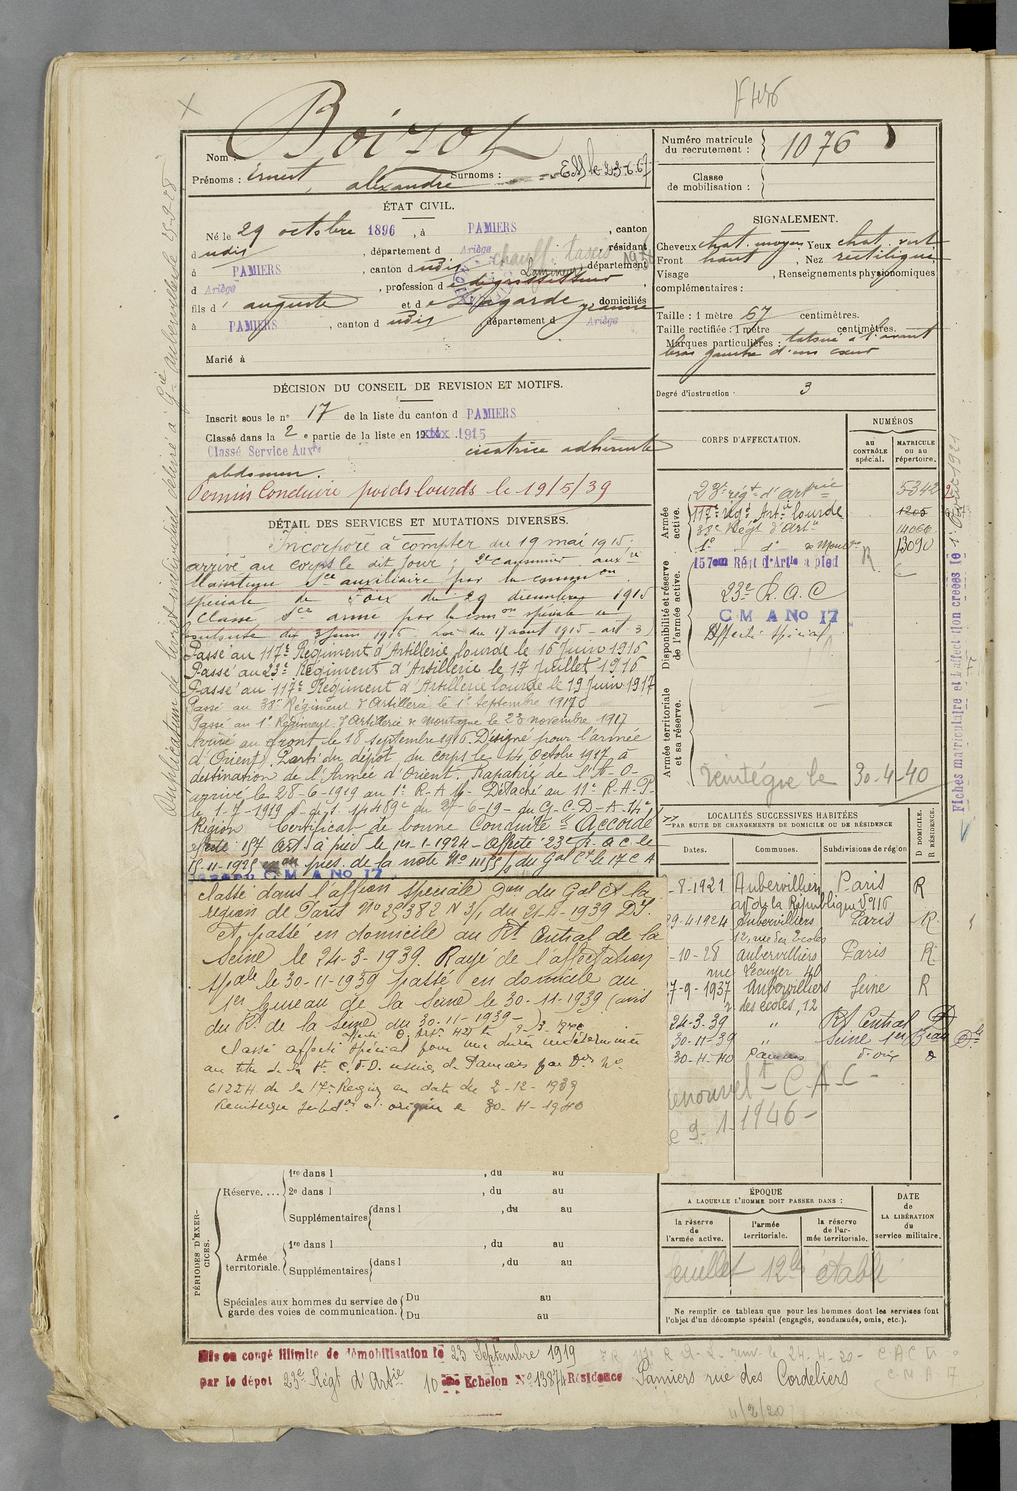 F 476
Boizot
Nom :
Prénoms : Ernest, alexandre Surnoms :
Numéro matricule
du recrutement : 1076
Classe
de mobilisation :
ÉTAT CIVIL.
Né le 29 octobre 1896, à PAMIERS, canton
dudis, département d Ariège, résidant
à PAMIERS, canton dudis, département
d Ariège, profession de dégrossisseur
fils d' auguste et de Lagarde jeanne domiciliés
à PAMIERS, canton dudis département d Ariège
Marié à
SIGNALEMENT.
Cheveux chat. moyen Yeux chat. vert
Front haut, Nez rectiligne
Visage , Renseignements physionomiques
complémentaires :
Taille : 1 mètre 67 centimètres.
Taille rectifiée : 1 mètre centimètres.
Marques particulières : tatoué à l'avant
bras gauche d'un cœur
Degré d'instruction : 3
DÉCISION DU CONSEIL DE REVISION ET MOTIFS.
Inscrit sous le n° 17 de la liste du canton d PAMIERS
Classé dans la 2e partie de la liste en 1915
Classé Service Auxre cicatrice adhérente
abdomen.
Permis Conduire poids lourds le 19/5/39
DÉTAIL DES SERVICES ET MUTATIONS DIVERSES.
Incorporé à compter du 19 mai 1915,
arrivé au corps le dit jour, 2e canonnier auxre
Maintenu Sce auxiliaire par la common
spéciale de Foix du 29 décembre 1915
Classé Sce armé par la common spéciale de
Toulouse du 3 juin 1916
Passé au 117e Régiment d'Artillerie lourde le 16 Juin 1916
Passé au 23e Régiment d'Artillerie le 17 Juillet 1916
Passé au 117e Régiment d'Artillerie lourde le 19 Juin 1917
Passé au 38e Régiment d'Artillerie le 1er Septembre 1917
Passé au 1er Régiment d'Artillerie de montagne le 23 novembre 1917
Arrivé au front le 18 septembre 1916. Désigné pour l'armée
d'Orient. Parti du dépôt du corps le 14 Octobre 1917 à
destination de l'Armée d'Orient. Rapatrié de l'A-O-
arrivé le 28-6-1919 au 1er R-A-M- Détaché au 11e R-A-P-
le 1-7-1919
Région Certificat de bonne Conduite Accordé
157 Art à pied le 1er-1-1924 - Affecté 23e R.A.C le
C M A No 17
classé dans l'affion spéciale du Gal Ct la
région de Paris No 29382 N 3/1 du 21-4-1939
et passé en domicile au Rt Central de la
Seine le 24-3-1939. Rayé de l'affectation
spale le 30-11-1939 passé en domicile au
1er bureau de la Seine le 30-11-1939 (avis
du Rt de la Seine du 30-11-1939-)
Classé affecté spécial pour une durée indéterminée
au titre de la usine de Pamiers par
61224 de la 17e Région en date du 2-12-1939
Réintègre d'origine le 30-4-1940
CORPS D'AFFECTATION.
NUMÉROS
AU CONTRÔLE spécial.
MATRICULE OU AU répertoire.
Armée active.
23e régt d'artrie 5342
117e rég. Art. lourde 1205
38e Régt d'Artie 14000
1er d° de Montne 13090
Disponibilité et réserve de l'armée active.
157eme Régt d'Artie à pied
23e R.A.C
C M A No 17
Affecté spécial
Armée territoriale et sa réserve.
réintégré le 30-4-40
LOCALITÉS SUCCESSIVES HABITÉES
PAR SUITE DE CHANGEMENTS DE DOMICILE OU DE RÉSIDENCE
D DOMICILE. R RÉSIDENCE.
Dates. Communes. Subdivisions de région
-8-1921 Aubervilliers Paris R
av de la République No 16
29-4-1924 Aubervilliers Paris R
12, rue des Ecoles
-10-28 Aubervilliers Paris R
rue Lécuyer 40
7-9-1937 Aubervilliers Seine R
r des écoles, 12
24-3-39 " Rt Central D
30-11-39 " Seine 1er Beau
30-4-40 Pamiers Foix D
renouvelt C-A-C-
le 9-1-1946-
PÉRIODES D'EXERCICES.
Réserve.... 1re dans l , du au
2e dans l , du au
Supplémentaires dans l , du au
Armée territoriale. 1re dans l , du au
Supplémentaires dans l , du au
Spéciales aux hommes du service de
garde des voies de communication. Du au
Du au
ÉPOQUE
A LAQUELLE L'HOMME DOIT PASSER DANS :
la réserve de l'armée active.
l'armée territoriale.
la réserve de l'armée territoriale.
DATE DE LA LIBÉRATION DU service militaire.
feuillet 12 le établi
Ne remplir ce tableau que pour les hommes dont les services font
l'objet d'un décompte spécial (engagés, condamnés, omis, etc.).
Mis en congé illimité de démobilisation le 23 Septembre 1919
par le dépôt 23e Régt d'Artie 10eme Echelon No 13874 Résidence Pamiers rue des Cordeliers
11/2/20